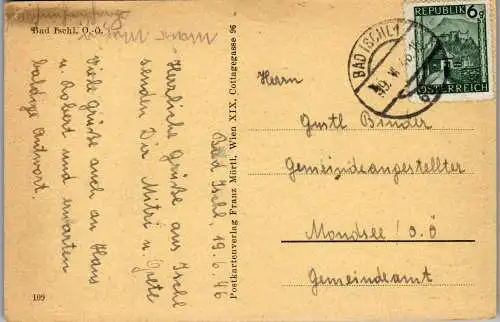 Bad Ischl, O.-Ö.
Bad Ischl 19.6.46
Herrliche Grüße aus Ischl
senden Dir Mitzi u. Grete
Viele Grüße auch an Hans
u. Robert und erwarten
baldige Antwort.
109
Postkartenverlag Franz Mörtl, Wien XIX, Cottagegasse 96
REPUBLIK 6g
ÖSTERREICH
BAD ISCHL 1
Herrn
Gustl Binder
Gemeindeangestellter
Mondsee / O.Ö
Gemeindeamt